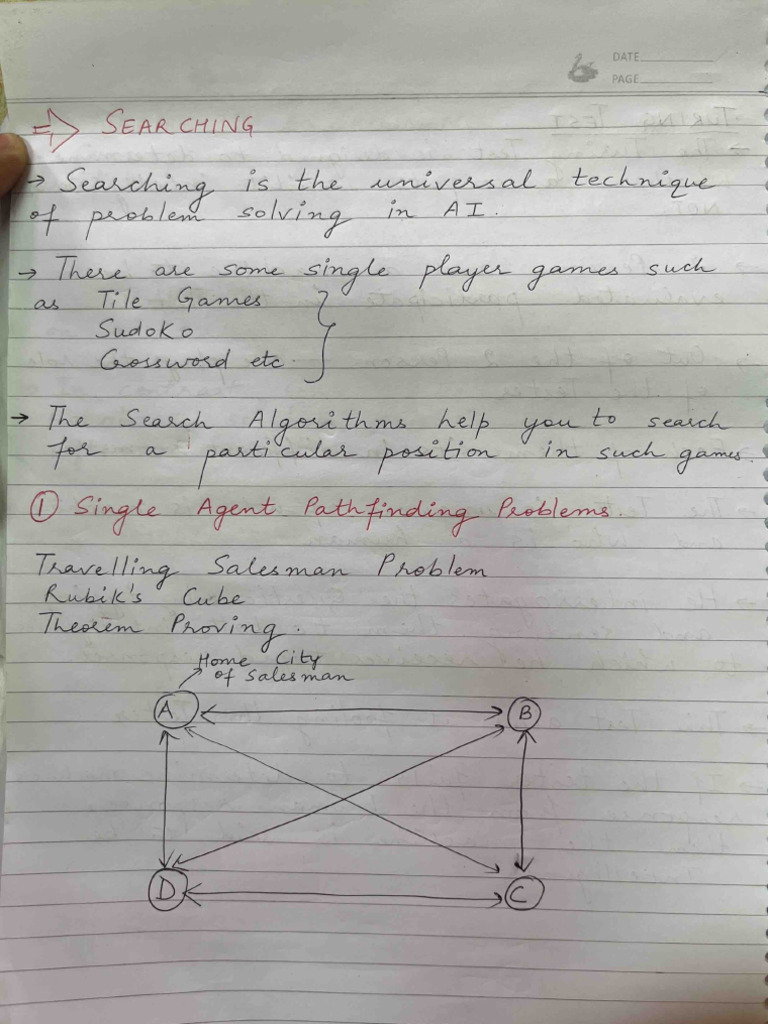 6 DATE
PAGE
⇒ SEARCHING
→ Searching is the universal technique
of problem solving in AI.
→ There are some single player games such
as Tile Games
Sudoko
Crossword etc.
→ The Search Algorithms help you to search
for a particular position in such games.
① Single Agent Pathfinding Problems.
Travelling Salesman Problem
Rubik's Cube
Theorem Proving.
Home City
of Salesman
A B
D C